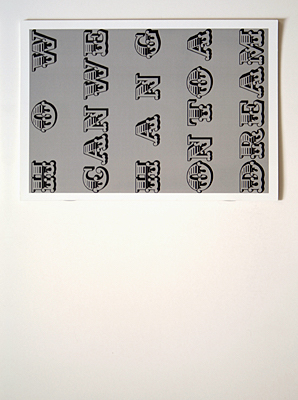 HOW
CAN WE
HANG
ON TO A
DREAM